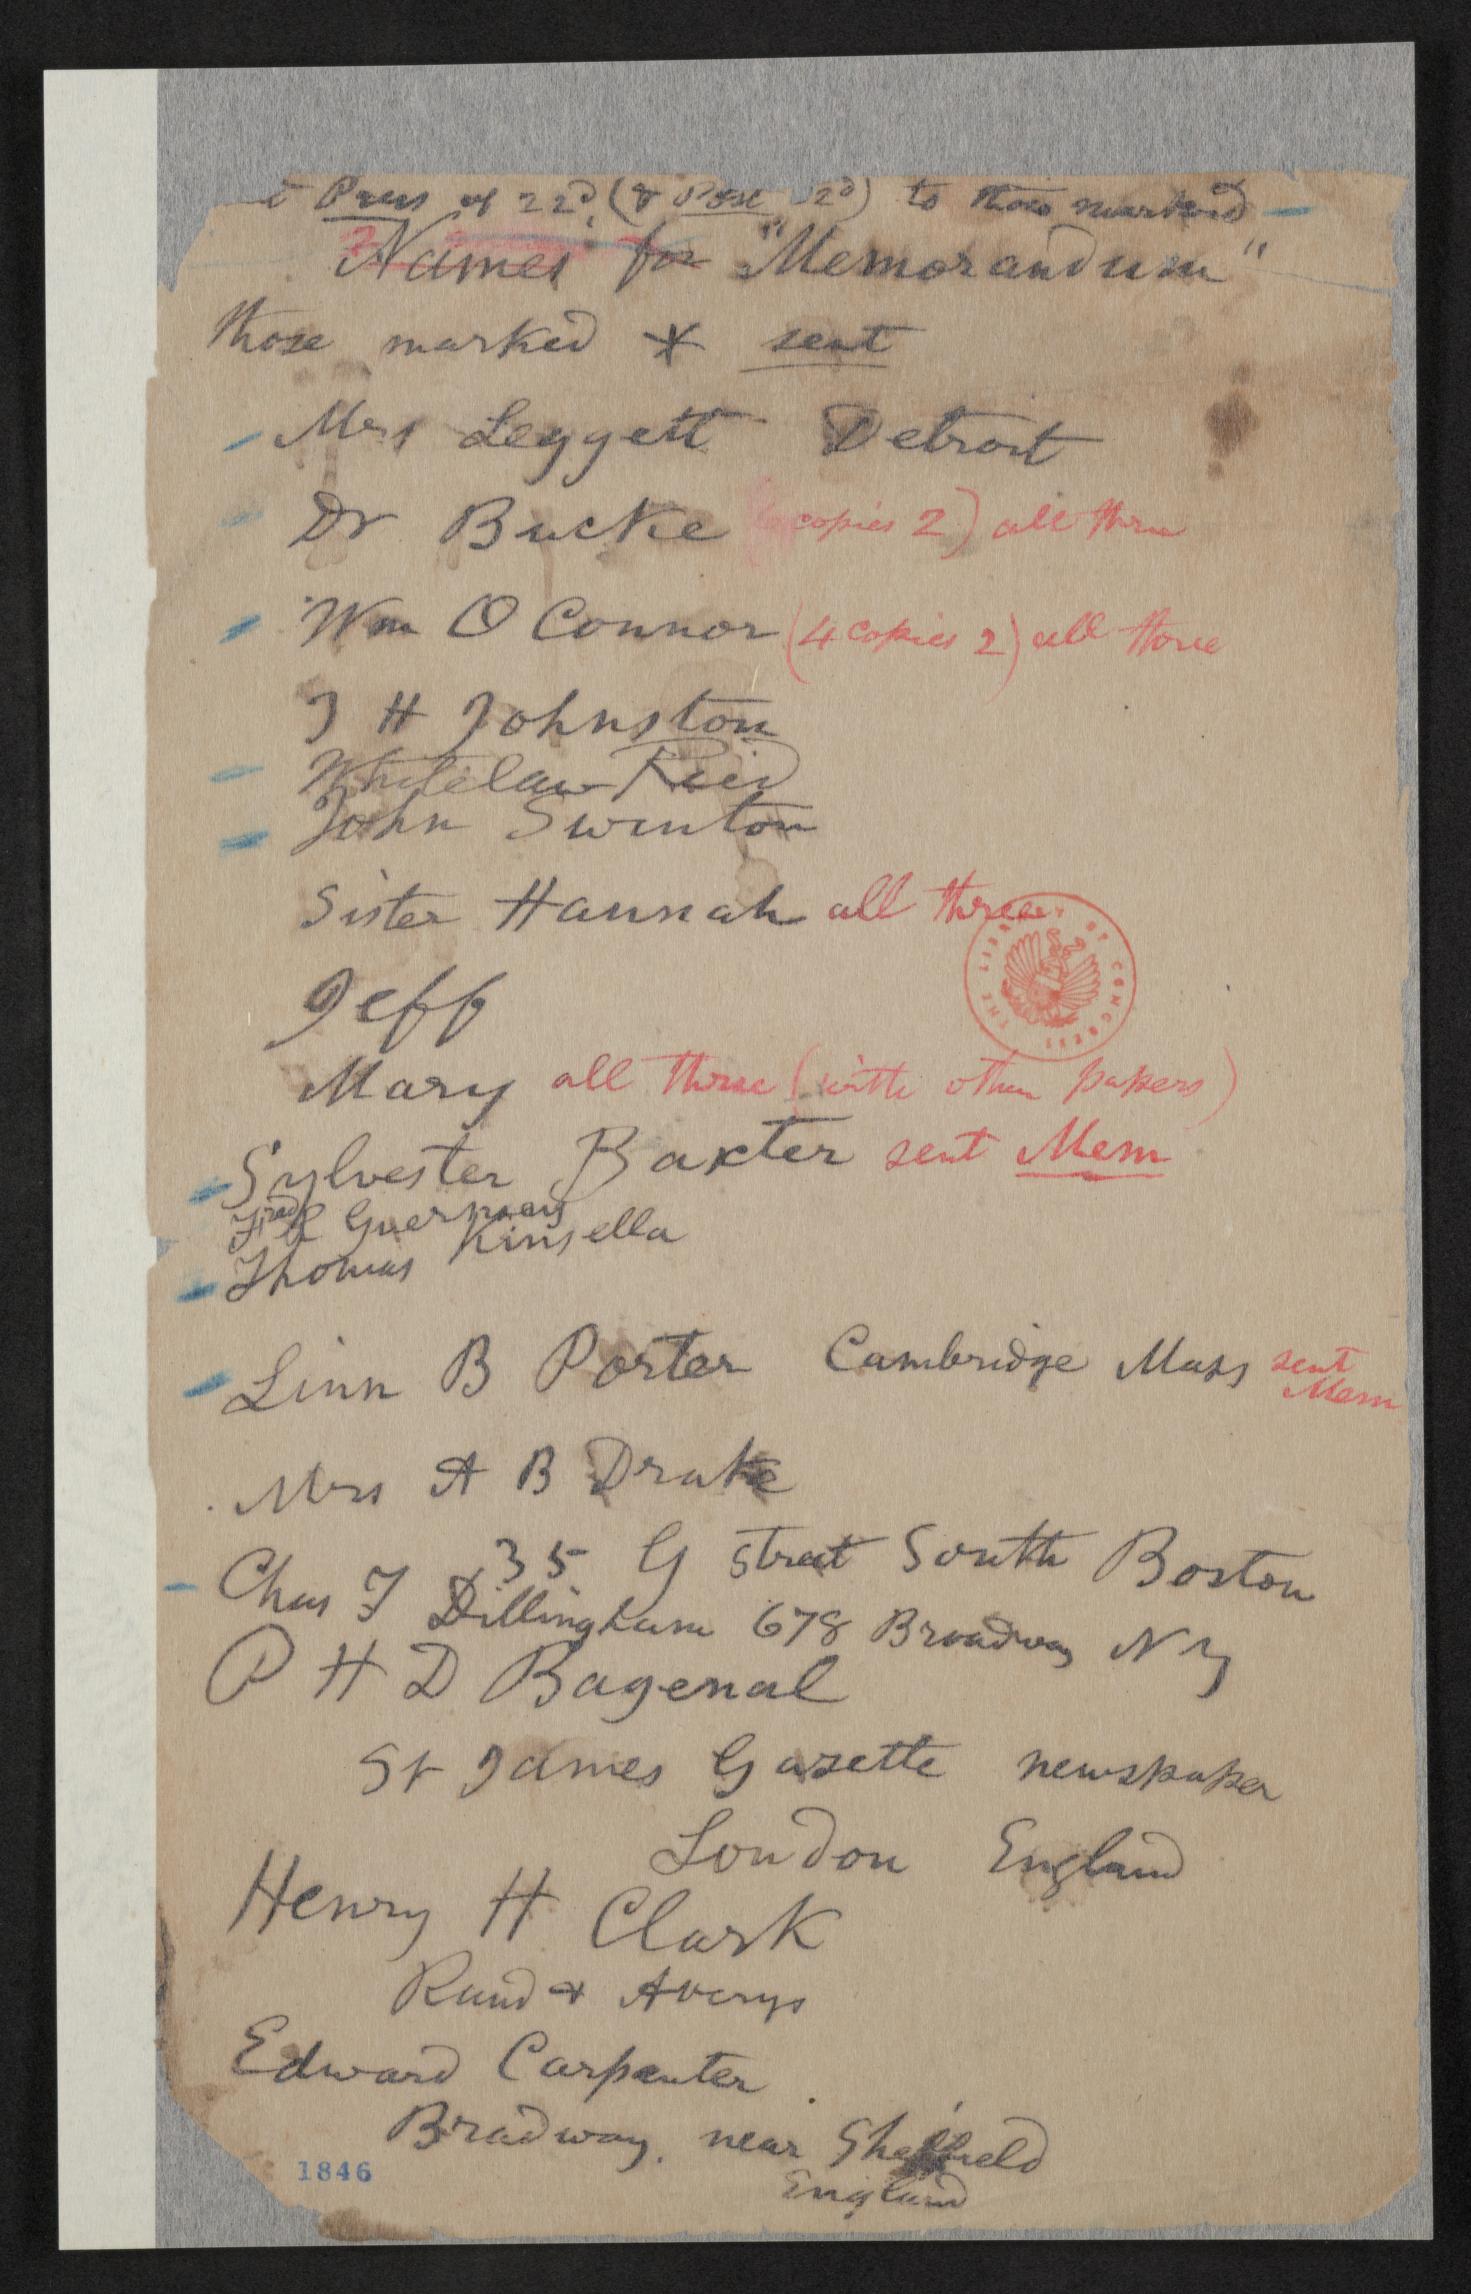 Press of 22d, (& Post 22d) to those marked —
Names for "Memorandum"
those marked * sent
Mrs Leggett Detroit
Dr Bucke copies 2) all three
Wm O Connor (4 copies 2) all three
J H Johnston
Whitelaw Reid
John Swinton
Sister Hannah all three
THE LIBRARY OF CONGRESS
Jeff
Mary all three (with other papers)
Sylvester Baxter sent Mem
Fred R Guernsey
Thomas Kinsella
Linn B Porter Cambridge Mass sent
Mem
Mrs A B Drake
35 G Street South Boston
Chas T Dillingham 678 Broadway N Y
P H D Bagenal
St James Gazette newspaper
London England
Henry H Clark
Rand & Averys
Edward Carpenter
Bradway, near Sheffield
England
1846